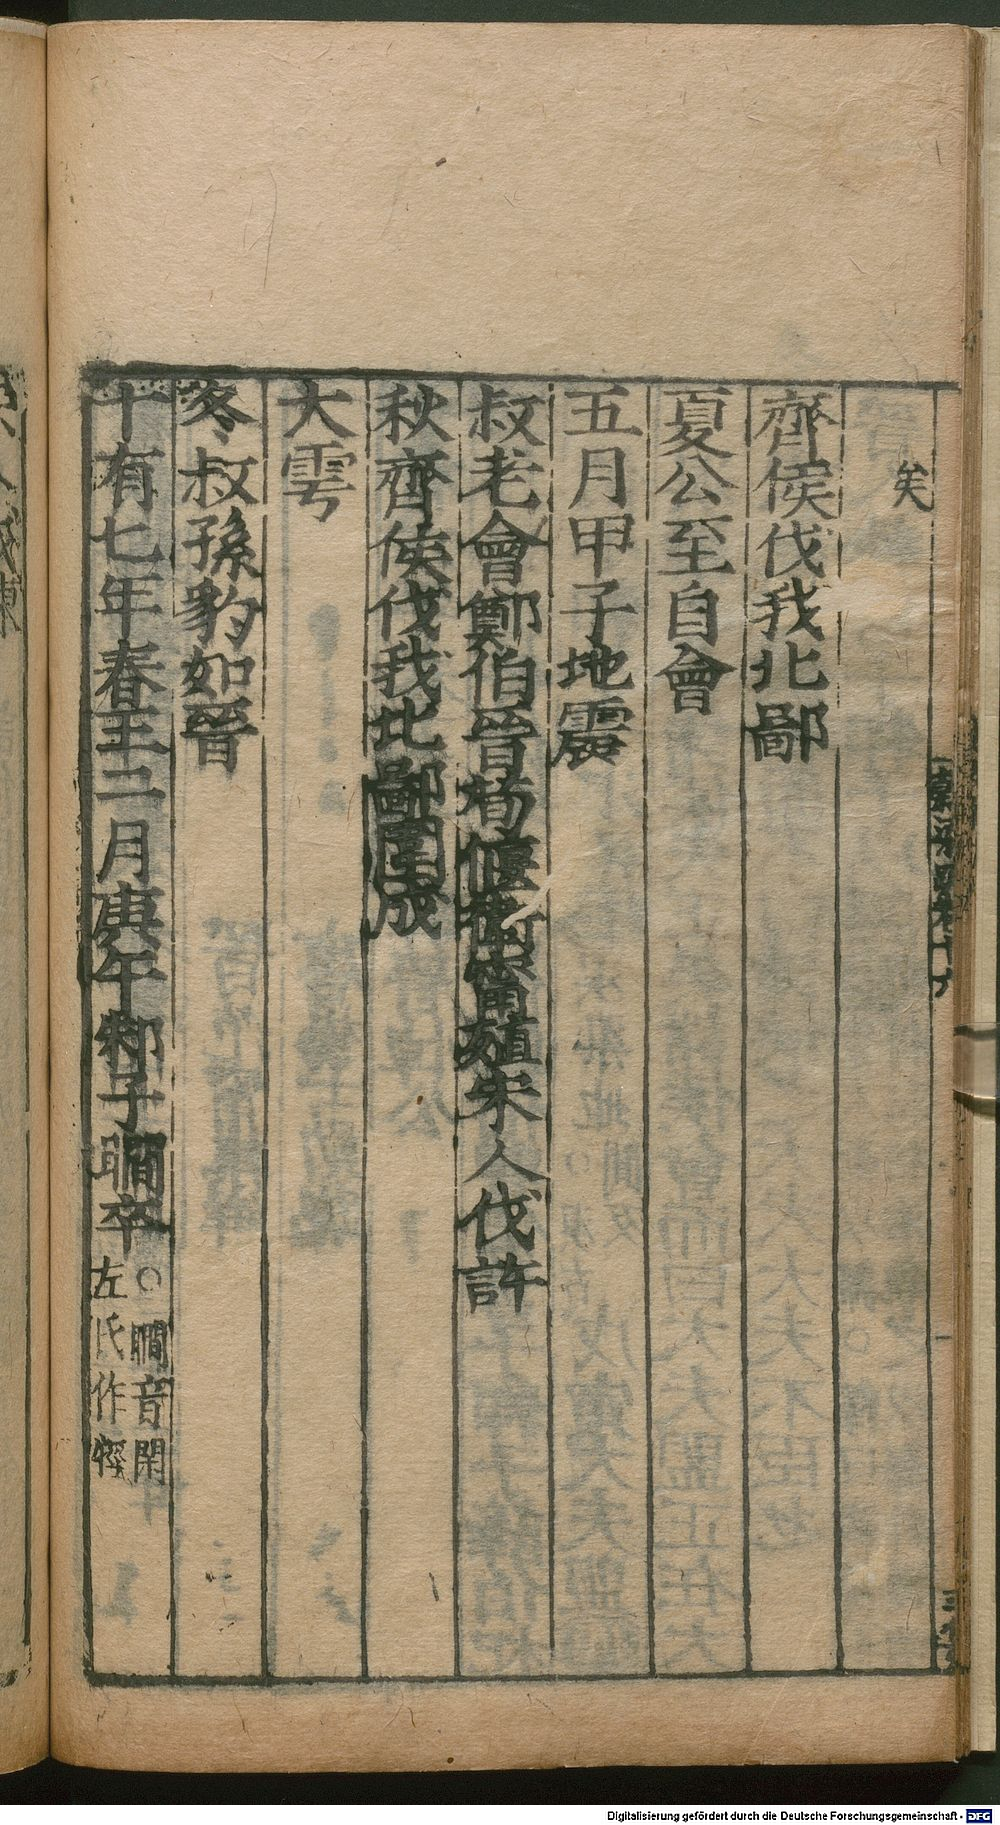 矣
齊侯伐我北鄙
夏公至自會
五月甲子地震
叔老會鄭伯晉荀偃衛甯殖宋人伐許
秋齊侯伐我北鄙圍成
大雩
冬叔孫豹如晉
十有七年春王二月庚午邾子瞷卒
○瞷音閑
左氏作牼
Digitalisierung gefördert durch die Deutsche Forschungsgemeinschaft - DFG